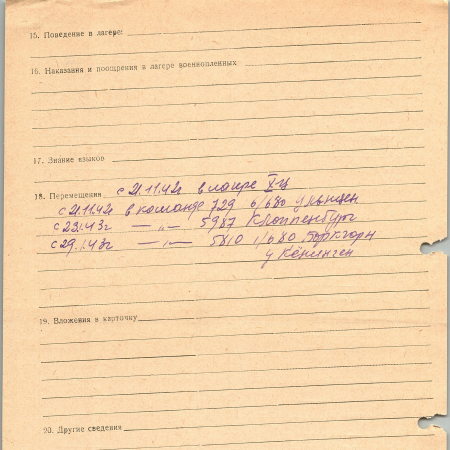 15. Поведение в лагере:
16. Наказания и поощрения в лагере военнопленных
17. Знание языков
18. Перемещения с 21.11.42 в лагере X-Ц
с 21.11.42 в команде 729 6/680
с 23.1.43г — „ — 5987 Клоппенбург
с 29.1.43г — „ — 5810 1/680 Боркгорн
у Кёнинген
19. Вложения в карточку
20. Другие сведения